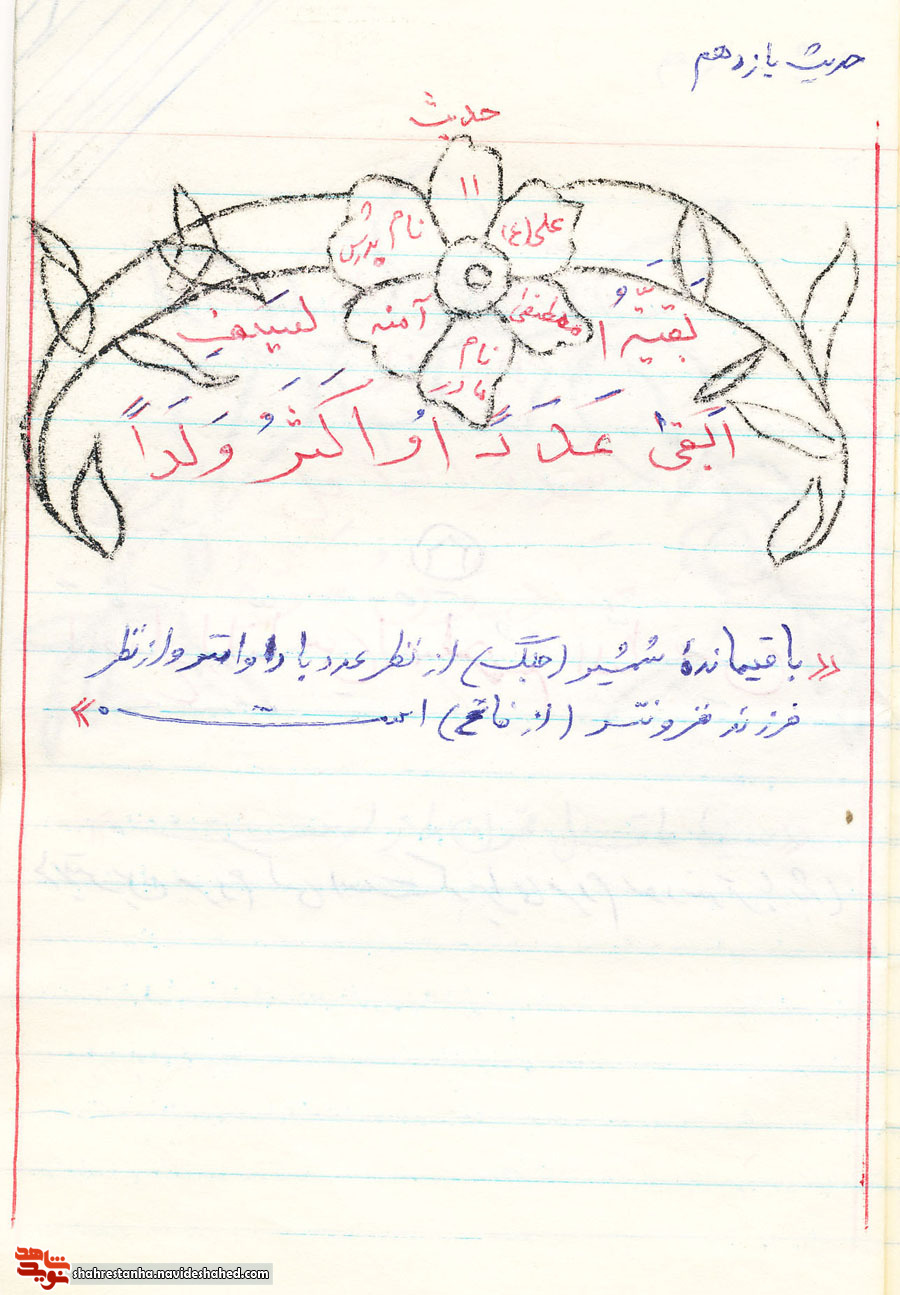 حدیث یازدهم
حدیث
۱۱
علی (ع)
نام پدرش
مصطفی
آمنه
نام مادر
بَقیَّةُ السَیَفِ
اَبَقیٰ عَدَدَاً اَوُ اکَثَرُ وَلَدَاً
«باقیمانده‌ٔ شمشیر (جنگ) از نظر عدد با دوامتر و از نظر
فرزند فزونتر (از فاتح) است»
نوید شاهد
shahrestanha.navideshahed.com